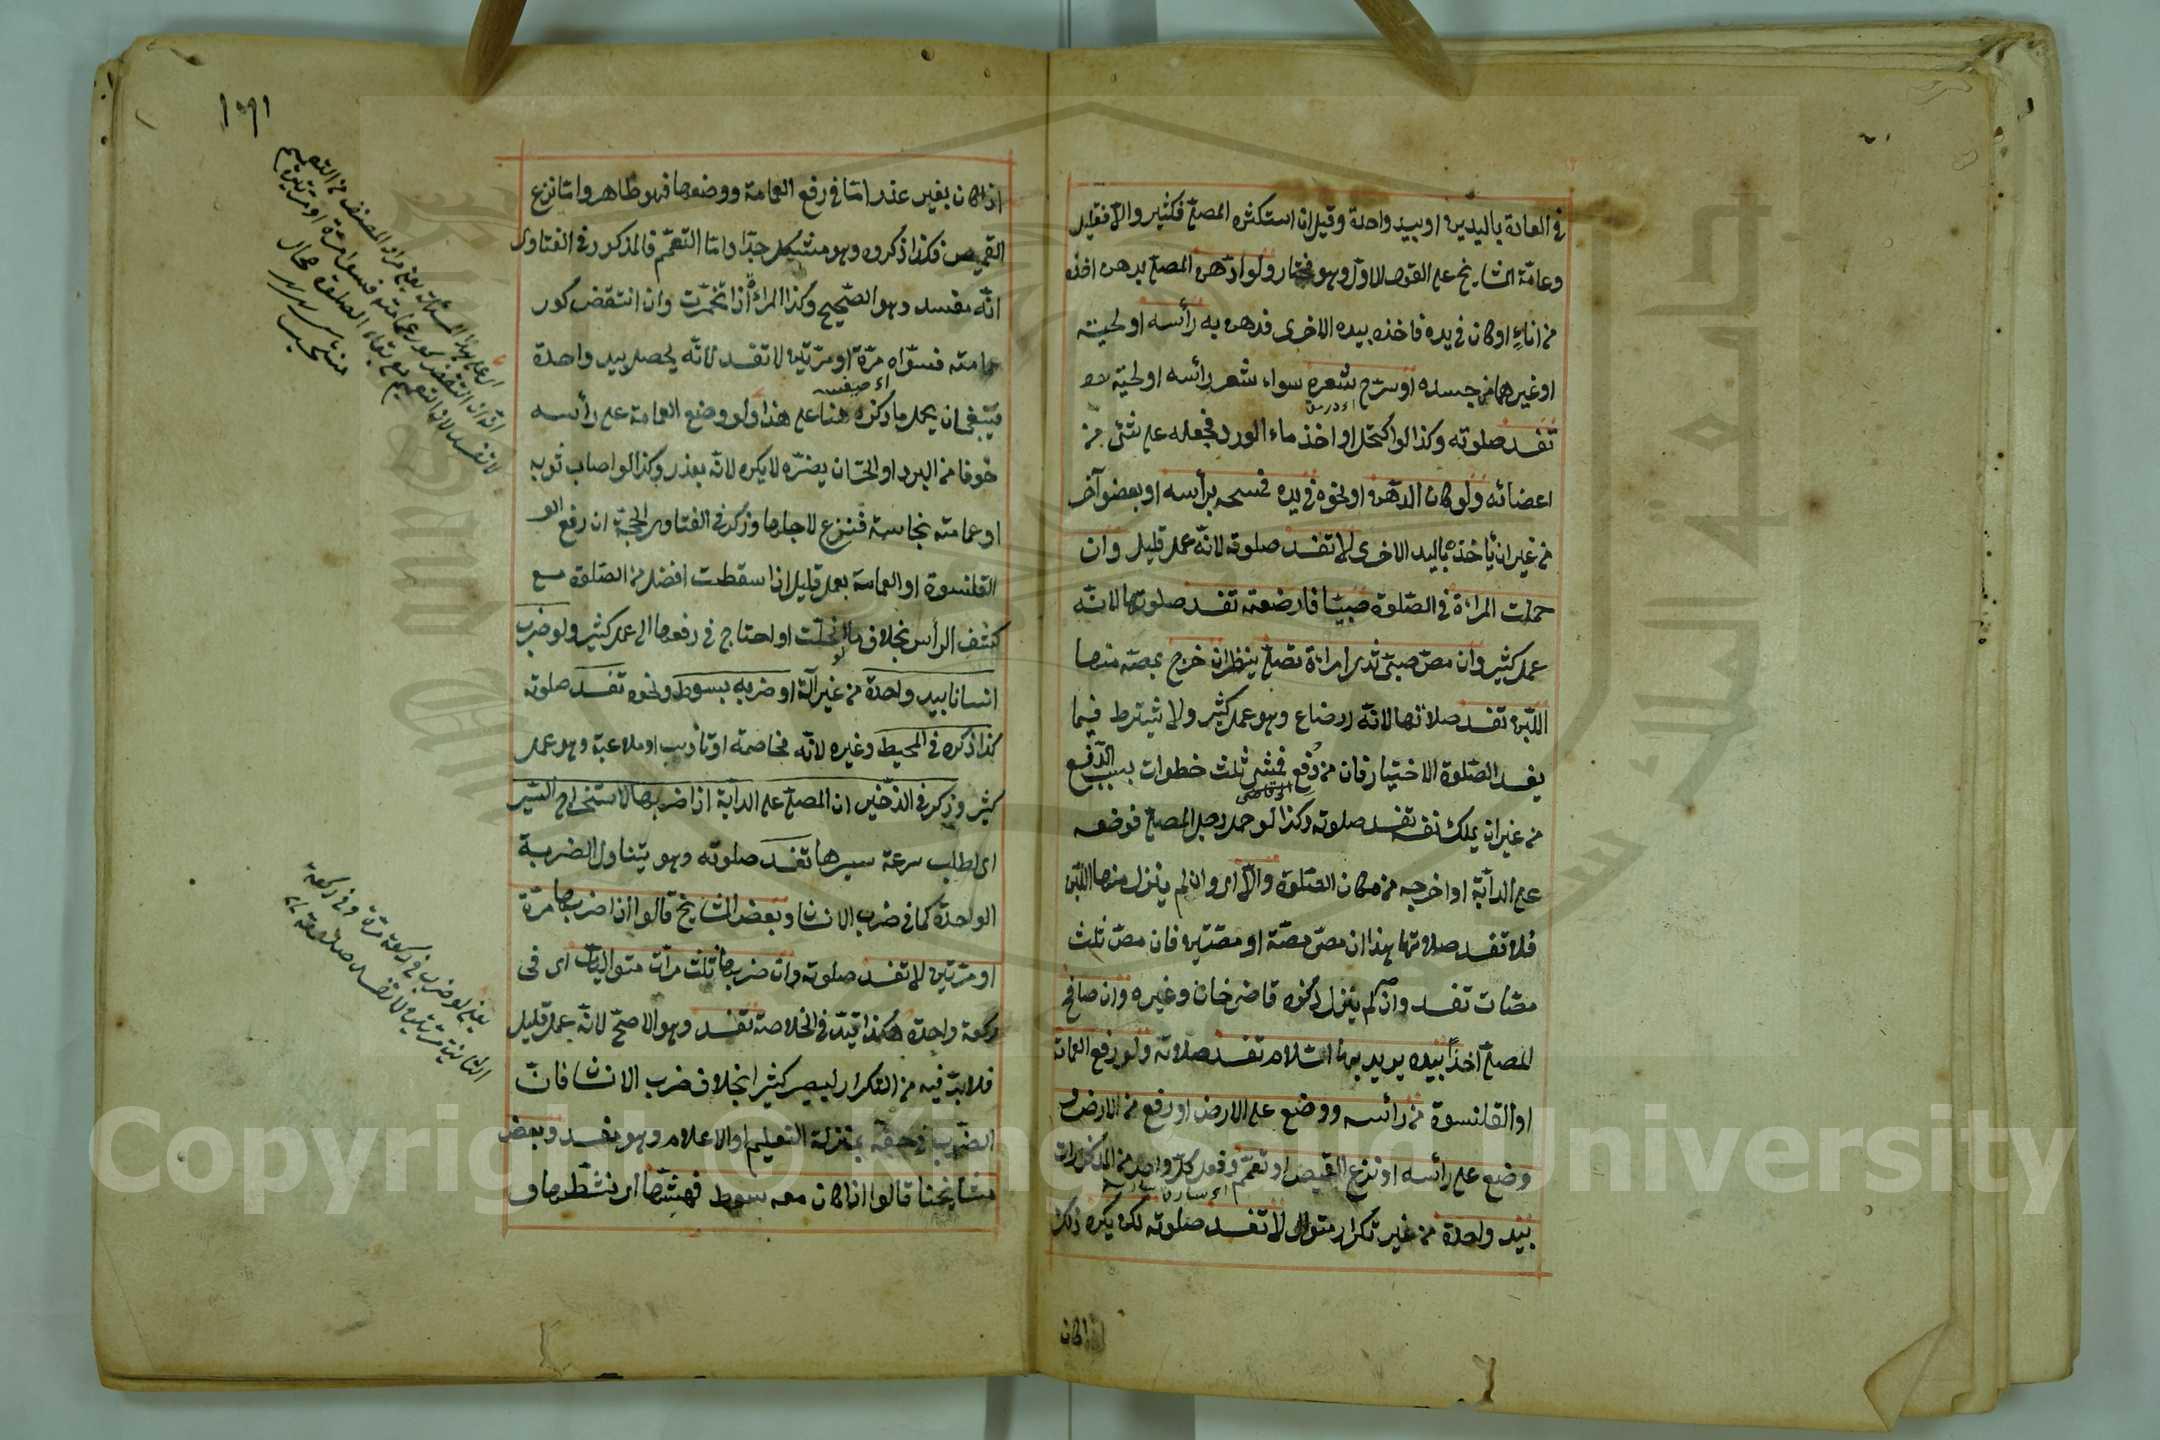 في العادة باليدين او بيد واحدة وقيل ان استكثره المصلي فكثير والا فقليل
وعامة المشايخ على القول الاول وهو مختار ولو ادهن المصلي بدهن اخذه
من اناء او كان في يده فاخذه بيده الاخرى فدهن به رأسه او لحيته
او غيرهما من جسده او سرح شعره سواء شعر رأسه او لحيته
تفسد صلوته وكذا لو اكتحل او اخذ ماء الورد فجعله على شئ من
اعضائه ولو كان الدهن او نحوه في يده فمسحه برأسه او بعضو آخر
من غير ان يأخذه باليد الاخرى لا تفسد صلوته لانه عمل قليل وان
حملت المراءة في الصلوة صبيا فارضعته تفسد صلوتها لانه
عمل كثير وان مص صبي ثدي امراءة تصلي ينظر ان خرج بمصه منها
اللبن تفسد صلاتها لانه ارضاع وهو عمل كثير ولا يشترط فيما
يفسد الصلوة الاختيار فان من دفع فمشى ثلث خطوات بسبب الدفع
من غير ان يملك نفسه تفسد صلوته وكذا لو حمل رجل المصلي فوضعه
على الدابة او اخرجه من مكان الصلوة والا اى وان لم ينزل منها اللبن
فلا تفسد صلاتها هذا ان مص مصة او مصتين فان مص ثلث
مصات تفسد وان لم ينزل ذكره قاضي خان وغيره وان صافح
المصلي احدًا بيده يريد بها السلام تفسد صلاته ولو رفع العمامة
او القلنسوة من رأسه ووضع على الارض او رفع من الارض و
وضع على رأسه او نزع القميص او تعمم وفعل كل واحد من المذكورات
بيد واحدة من غير تكرار متوال لا تفسد صلوته لكن يكره ذلك
اذا كان
١٥٩١
اذا كان بغير عذر اما في رفع العمامة ووضعها فهو ظاهر واما نزع
القميص فكذا ذكروه وهو مشكل جدا واما التعمم فالمذكور في الفتاوى
انه مفسد وهو الصحيح وكذا المراءة اذا تخمرت وان انتقض كور
عمامته فسواه مرة او مرتين لا تفسد لانه يحصل بيد واحدة
فينبغي ان يحمل ما ذكره هنا على هذا ولو وضع العمامة على رأسه
خوفا من البرد او الحر ان يضره لا يكره لانه بعذر وكذا لو اصاب ثوبه
او عمامته نجاسة فنزع لاجلها وذكر في الفتاوى الحجة ان رفع
القلنسوة او العمامة بعمل قليل اذا سقطت افضل من الصلوة مع
كشف الرأس بخلاف ما انحلت او احتاج في رفعها الى عمل كثير ولو ضرب
انسانا بيد واحدة من غير آلة او ضربه بسوط ونحوه تفسد صلوته
كذا ذكره في المحيط وغيره لانه مخاصمة او تأديب او ملاعبة وهو عمل
كثير وذكر في الذخيرة ان المصلي على الدابة اذا ضربها لاستخراج السير
اى لطلب سرعة سيرها تفسد صلوته وهو يتناول الضربة
الواحدة كما في ضرب الانسان وبعض المشايخ قالوا اذا ضربها مرة
او مرتين لا تفسد صلوته وان ضربها ثلث مرات متواليات اى في
ركعة واحدة هكذا قيد في الخلاصة تفسد وهو الاصح لانه عمل قليل
فلا بد فيه من التكرار ليصير كثيرا بخلاف ضرب الانسان فان
الضرب في حقه بمنزلة التعليم او الاعلام وهو مفسد وبعض
مشايخنا قالوا اذا كان معه سوط فهشها اى نشطها و
لا تفسد لان التعمم مع بقاء الصلوة محال
يعني لو ضرب في ركعة مرة وفي ركعة
الثانية مرتين لا تفسد صلاته